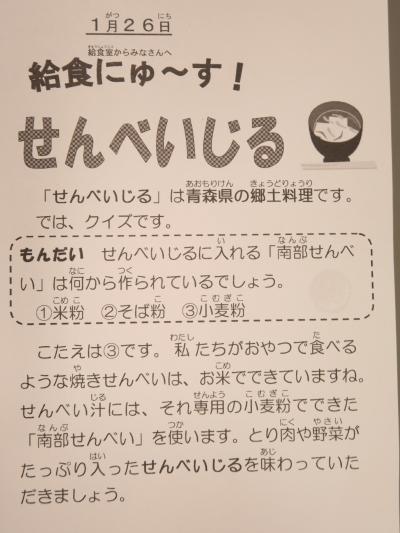 1月26日
給食室からみなさんへ
給食にゅ～す！
せんべいじる
「せんべいじる」は青森県の郷土料理です。
では、クイズです。
もんだい　せんべいじるに入れる「南部せんべ
い」は何から作られているでしょう。
①米粉　②そば粉　③小麦粉
こたえは③です。私たちがおやつで食べる
ような焼きせんべいは、お米でできていますね。
せんべい汁には、それ専用の小麦粉でできた
「南部せんべい」を使います。とり肉や野菜が
たっぷり入ったせんべいじるを味わっていた
だきましょう。